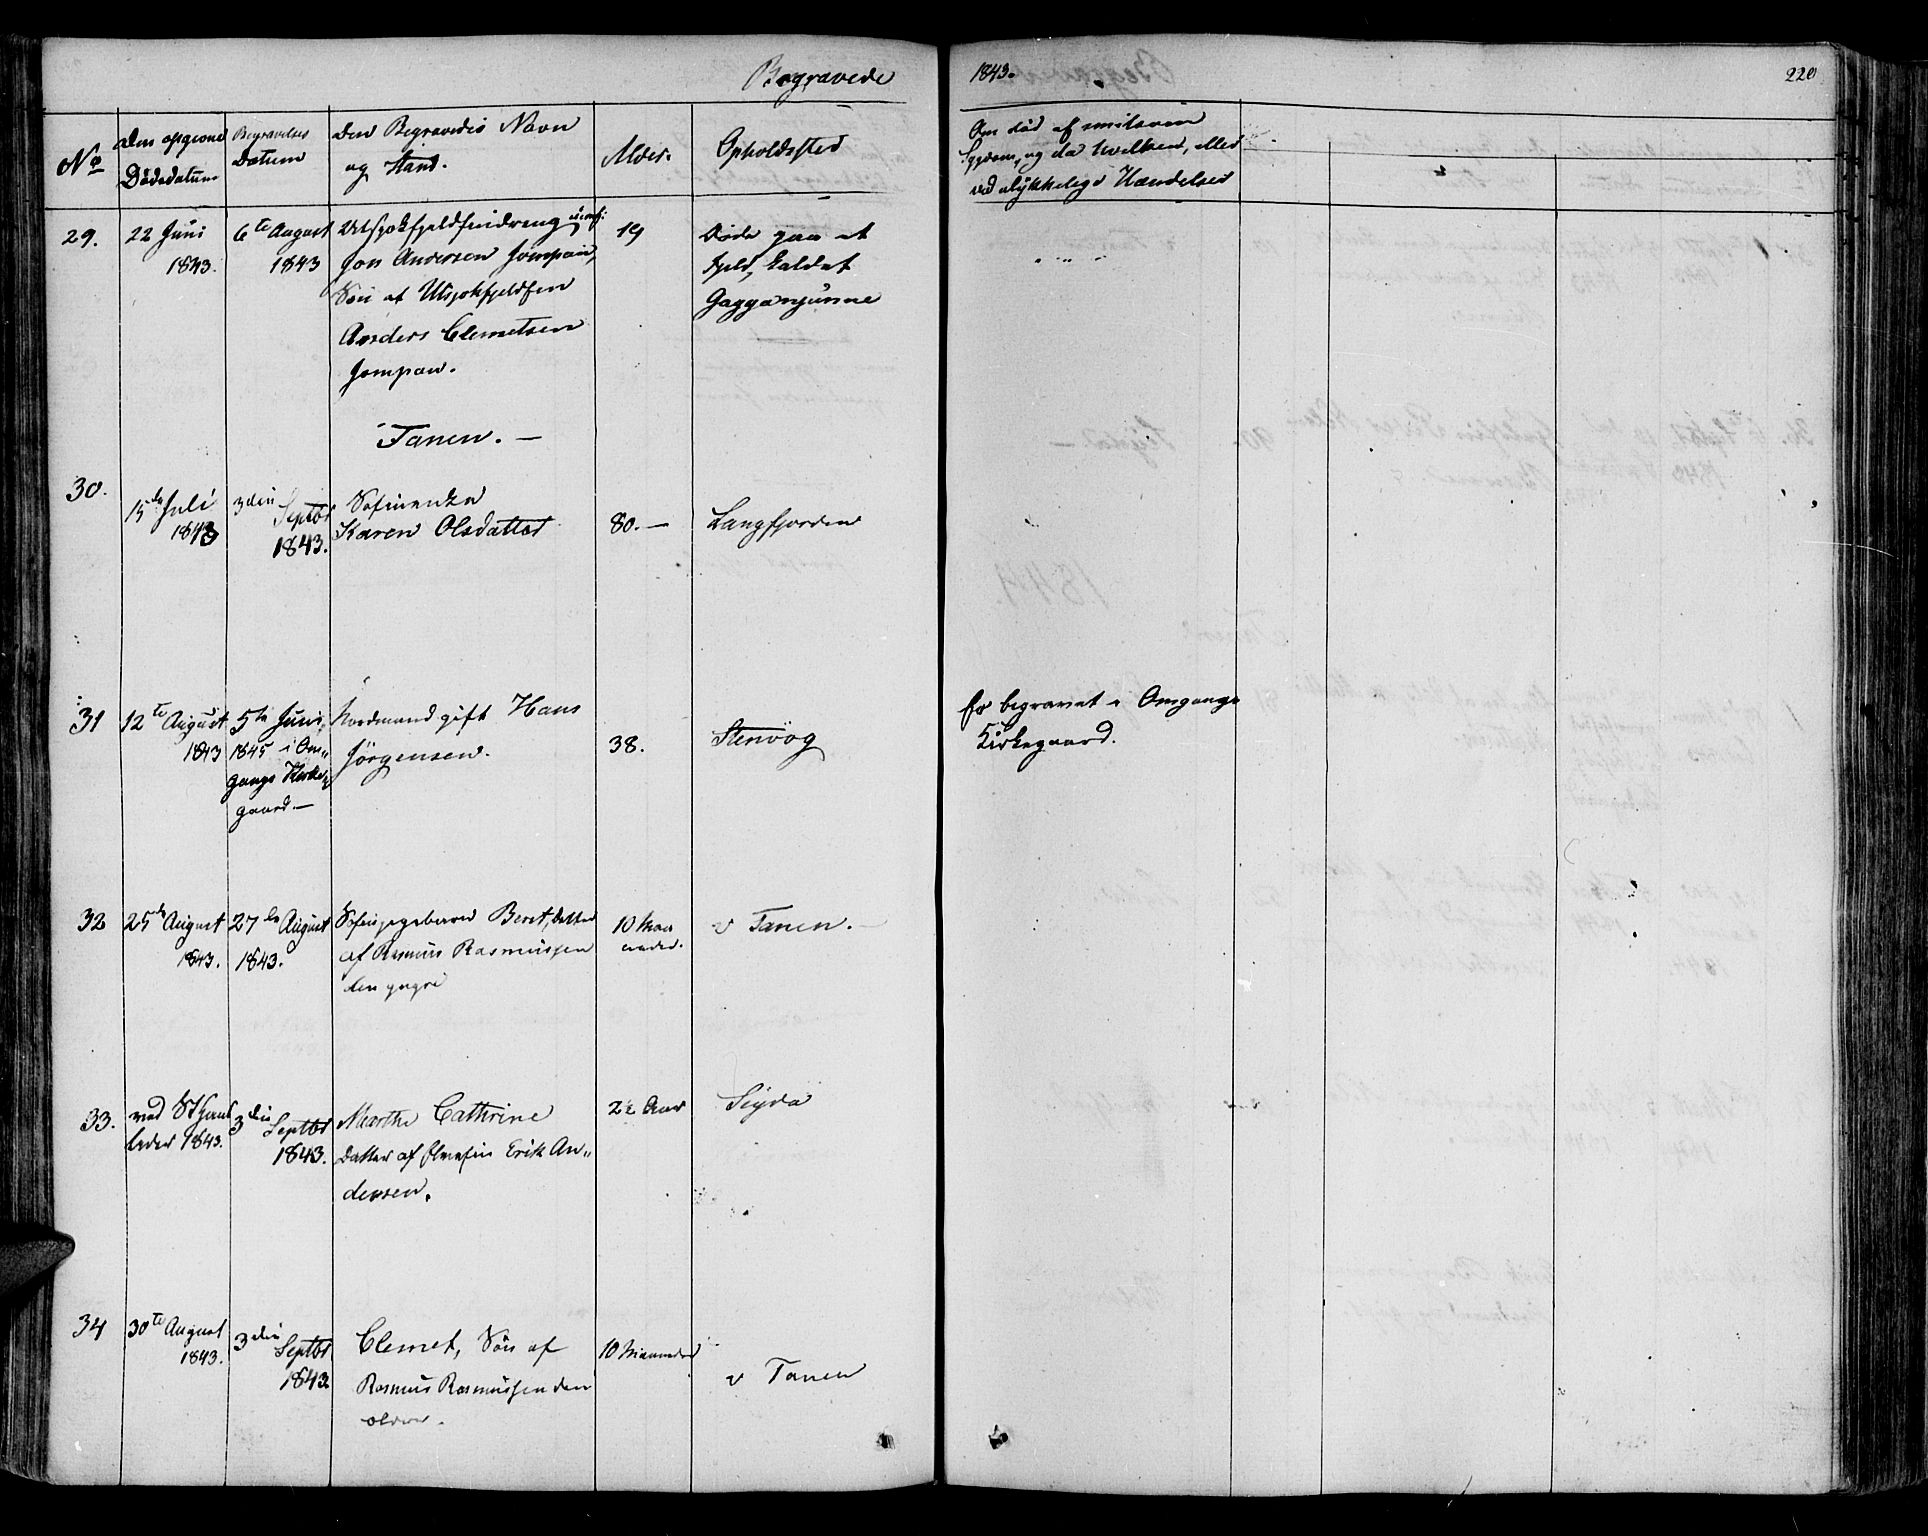 Begravede
1843.
220
No
Den opgivne
Dødsdatum
Begravelses
Datum
Den Begravedes Navn
og Stand.
Alder.
Opholdssted
Om død af smitsom
Sygdom, og da hvilken, eller
ved ulykkelige Hændelser
29.
22 Juni
1843.
6te August
1843
Utsjokfjeldfindreng
Jon Andersen Jompan,
Sön af Utsjokfjeldfin
Anders Clemetsen
Jompan.
19
Døde paa et
Fjeld, kaldet
Gagganjunne
Tanen. —
30.
15de Juli
1843
3die
Septbr
1843.
Søfinenke
Karen Olsdatter
80. —
Langfjorden
31
12te August
1843
5te Juni
1845 i Om„
gangs Kirke„
gaard. —
Nordmand gift Hans
Jörgensen.
38.
Stenvög
Er begravet i Omgangs
Kirkegaard.
32
25de August
1843.
27de August
1843.
Søfinpigebarn Beret, Datter
af Rasmus Rasmussen
den yngre
10 Maa
neder.
v Tanen.
33.
ved St Hans
leder 1843.
3die
Septbr
1843.
Marthe Cathrine
Datter af Elvefin Erik An„
dersen.
2½ Aar
Seyda
34
30te August
1843.
3die
Septbr
1843
Clemet, Sön af
Rasmus Rasmussen den
ældre.
10 Maaneder
v Tanen